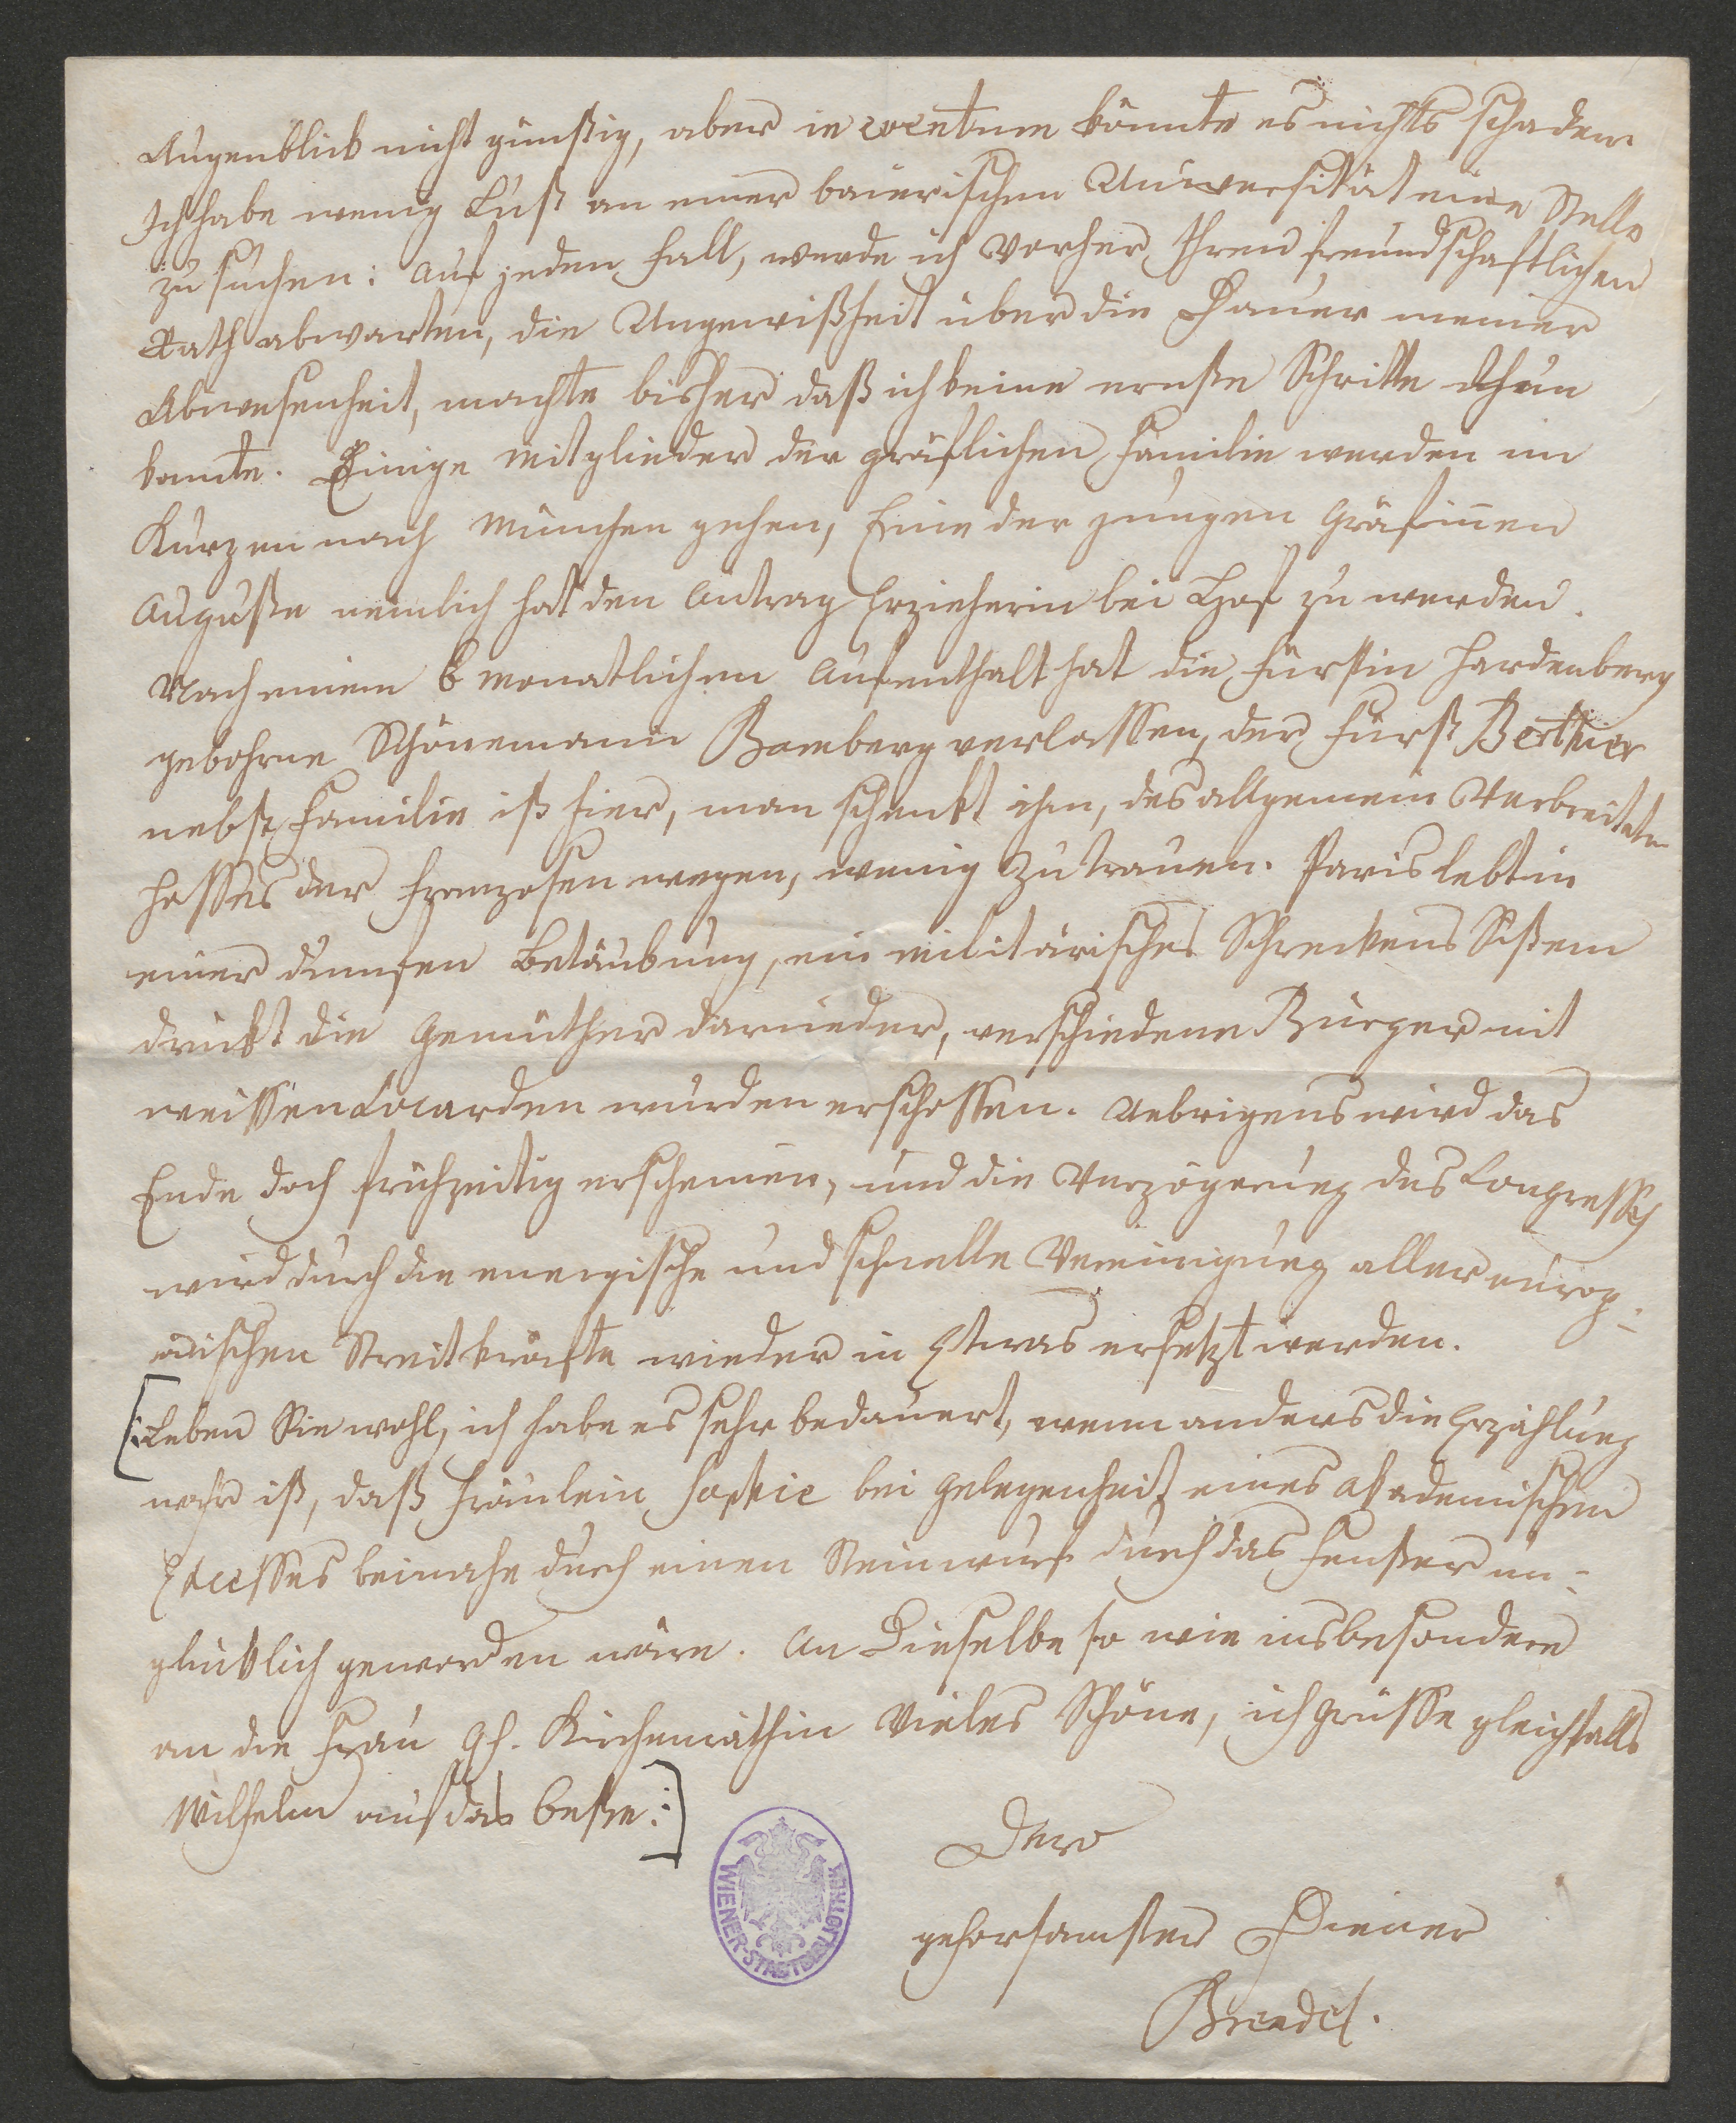 Augenblick nicht günstig, aber in eventum könnte es nichts schaden.
Ich habe wenig Lust an einer baierischen Universität eine Stelle
zu suchen: auf jeden Fall, werde ich vorher Ihren freundschaftlichen
Rath abwarten, die Ungewißheit über die Dauer meiner
Abwesenheit, machte bisher daß ich keine ernste Schritte thun
konnte. Einige Mitglieder der gräflichen Familie werden in
Kurzen nach München gehen, Eine der jungen Gräfinnen
Auguste nemlich hat den Antrag Erzieherin bei Hof zu werden.
Nach einem 6 monatlichen Aufenthalt hat die Fürstin Hardenberg
gebohrne Schönemann Bamberg verlassen, der Fürst Berthier
nebst Familie ist hier, man schenkt ihm, des allgemein Verbreiteten
Hasses der Franzosen wegen, wenig Zutrauen. Paris lebt in
einer dumfen Betäubung, ein militärisches Schreckens Sistem
drückt die Gemüther darnieder, verschiedene Bürger mit
weissen Cocarden wurden erschossen. Uebrigens wird das
Ende doch frühzeitig erscheinen, und die Verzögerung des Congresses
wird durch die energische und schnelle Vereinigung aller europ-
äischen Streitkräfte wieder in Etwas ersetzt werden.
[:Leben Sie wohl, ich habe es sehr bedauert, wenn anders die Erzählung
wahr ist, daß Fräulein Sophie bei Gelegenheit eines akademischen
Excesses beinahe durch einen Steinwurf durch das Fenster un-
glücklich geworden wäre. An Dieselbe so wie insbesondere
an die Frau Gh. Kirchenräthin Vieles Schöne, ich grüsse gleichfalls
Wilhelm auf das beste:]
Dero
gehorsamster Diener
Brendel.
WIENER-STADTBIBLIOTHEK